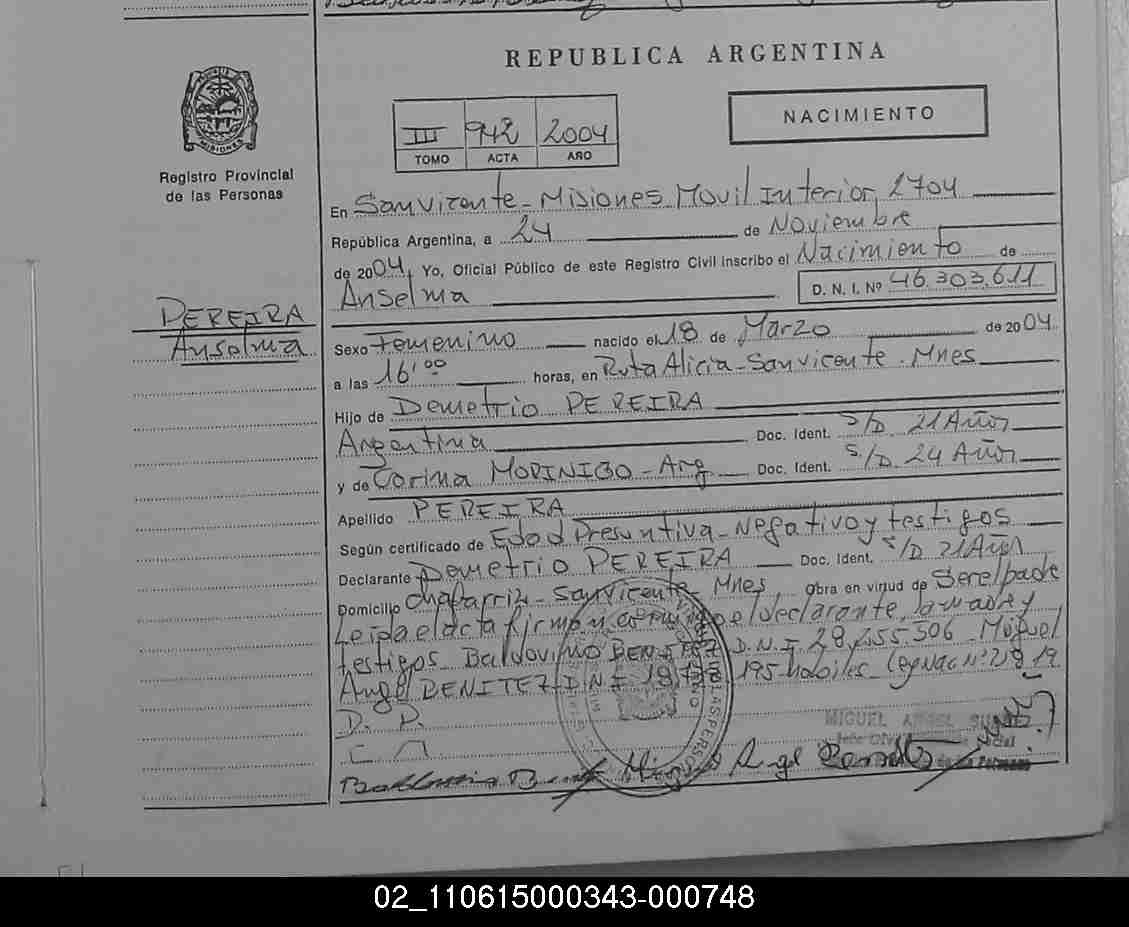 REPUBLICA ARGENTINA
NACIMIENTO
III 942 2004
TOMO ACTA AÑO
MISIONES
Registro Provincial
de las Personas
En San Vicente - Misiones Movil Interior 2704
República Argentina, a 24 de Noviembre
de 2004, Yo, Oficial Público de este Registro Civil inscribo el Nacimiento de
Anselma D. N. I. Nº 46.303.611
PEREIRA
Anselma
Sexo Femenino nacido el 18 de Marzo de 2004
a las 16'00 horas, en Ruta Alicia - San Vicente - Mnes
Hijo de Demetrio PEREIRA
Argentina Doc. Ident. S/D 21 Años
y de Corina MORINIGO - Arg Doc. Ident. S/D 24 Años
Apellido PEREIRA
Según certificado de Edad Presuntiva - Negativo y testigos
Declarante Demetrio PEREIRA Doc. Ident. S/D 21 Años
Domicilio San Vicente - Mnes Obra en virtud de Ser el padre
Leida el acta firman el declarante, la madre y
testigos Baldovino D.N.I. 28.255.506 - Miguel
Angel BENITEZ D.N.I. 18
D. P.
C M
MIGUEL ANGEL
Angel
02_110615000343-000748